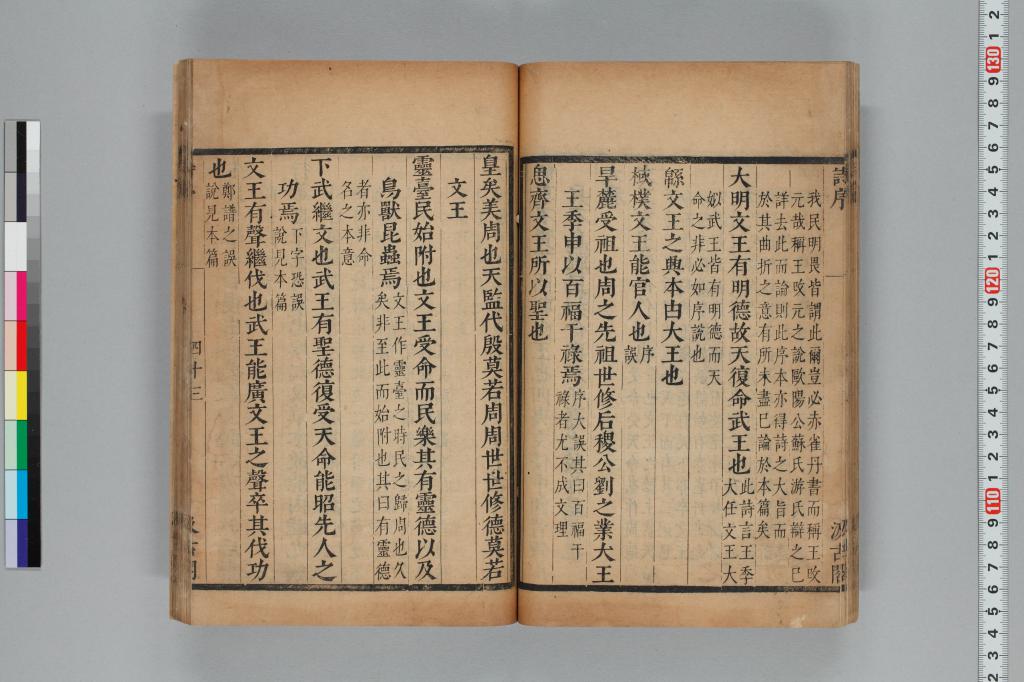 詩序
汲古閣
我民明畏皆謂此爾豈必赤雀丹書而稱王改
元哉稱王改元之說歐陽公蘇氏游氏辯之已
詳去此而論則此序本亦得詩之大旨而
於其曲折之意有所未盡已論於本篇矣
大明文王有明德故天復命武王也此詩言王季
大任文王大
姒武王皆有明德而天
命之非必如序說也
緜文王之興本由大王也
棫樸文王能官人也序
誤
旱麓受祖也周之先祖世修后稷公劉之業大王
王季申以百福干祿焉序大誤其曰百福干
祿者尤不成文理
思齊文王所以聖也
皇矣美周也天監代殷莫若周周世世修德莫若
文王
靈臺民始附也文王受命而民樂其有靈德以及
鳥獸昆蟲焉文王作靈臺之時民之歸周也久
矣非至此而始附也其曰有靈德
者亦非命
名之本意
下武繼文也武王有聖德復受天命能昭先人之
功焉下字恐誤
說見本篇
文王有聲繼伐也武王能廣文王之聲卒其伐功
也鄭譜之誤
說見本篇
四十三